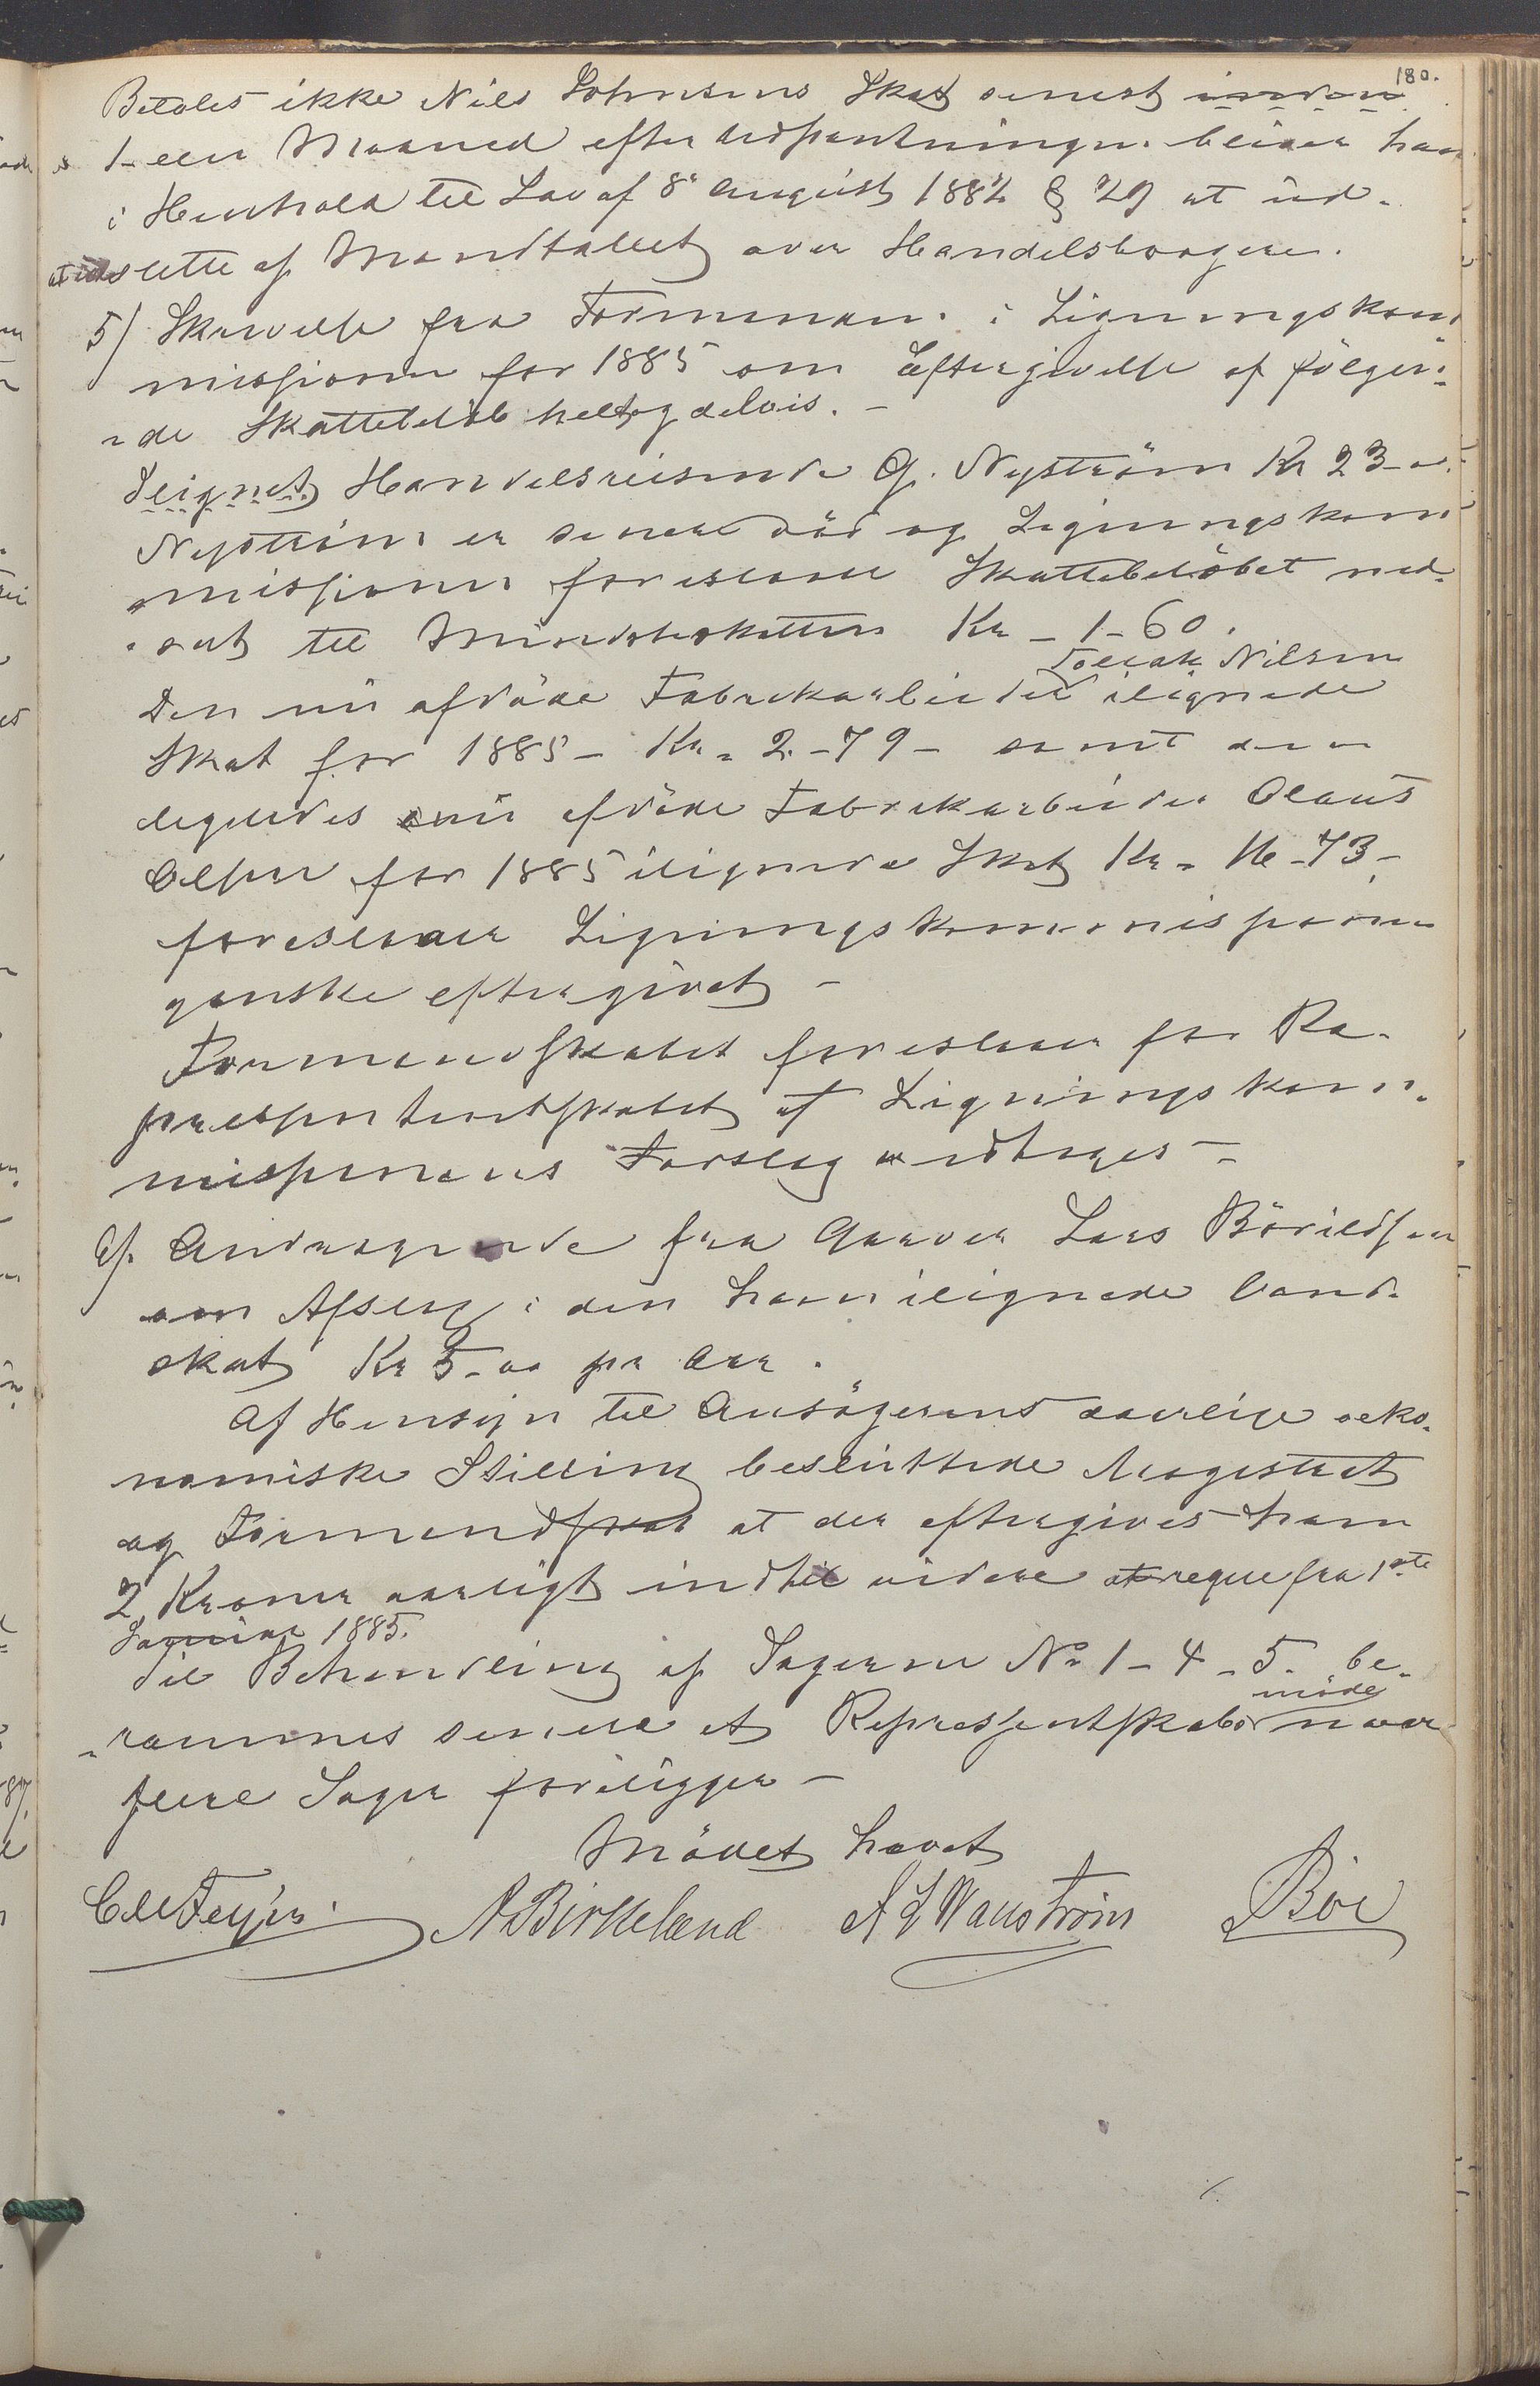 180.
Betales ikke Nils Johnsens Skat senest inden
1- een Maaned efter Udpantningen bliver han
i Henhold til Lov af 8de August 1882 § 29 at ud-
slette af Mandtallet over Handelsborgere.
5/ Skrivelse fra Formanden i Ligningskom
missionen for 1885 om Eftergivelse af fölgen-
-de Skattebelöb helt og delvis. -
Ilignet Handelsreisende G. Nyström Kr 23-
Nyström er senere död og Ligningskom
missionen foreslaar Skattebelöbet ned-
-sat til Mindsteskatten Kr - 1-60.
Tollak Nilsen
Den nu afdöde Fabrikarbeider ilignede
Skat for 1885 - Kr = 2-79 - samt den
ligeledes nu afdöde Fabrikarbeider Olaus
Olsen for 1885 ilignede Skat Kr = 16-73-
foreslaar Ligningskommissionen
ganske eftergivet -
Formandskabet foreslaar for Re-
præsentantskabet at Ligningskom-
missionens Forslag vedtages -
6/ Andragende fra Garver Lars Börildsen
om Afslag i den ham ilignede Vand-
skat Kr 5-00 pr Aar.
Af Hensyn til Ansögerens daarlige öko-
nomiske Stilling besluttede Magistrat
og Formandskab at der eftergives ham
2 Kroner aarligt indtil videre at regne fra 1ste
Januar 1885.
Til Behandling af Sagerne No 1-4-5- be-
möde
-rammes senere et Repræsentskabs naar
flere Sager foreligger -
Mödet hævet
A Birkeland A L Wallström Böe